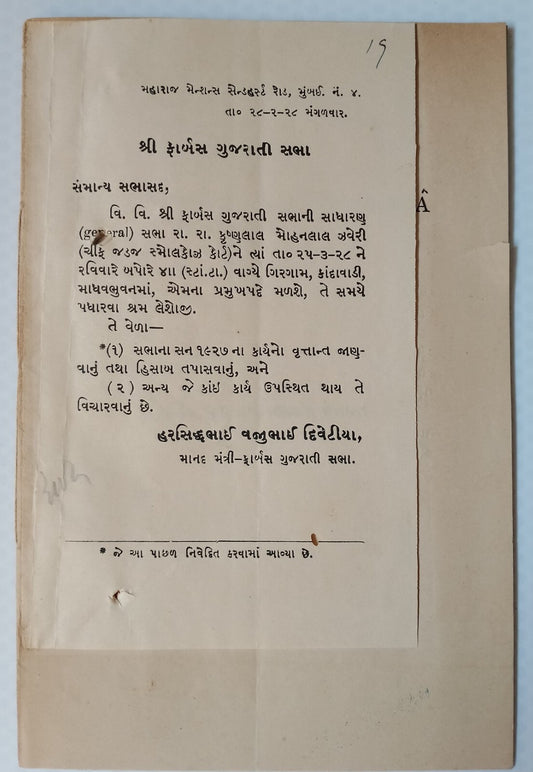 19
મહારાજ મેન્શન્સ સેન્ડહર્સ્ટ રોડ, મુંબઈ. નં. ૪.
તા૦ ૨૮-૨-૨૮ મંગળવાર.
શ્રી ફાર્બસ ગુજરાતી સભા
સંમાન્ય સભાસદ,
વિ. વિ. શ્રી ફાર્બસ ગુજરાતી સભાની સાધારણ
(general) સભા રા. રા. કૃષ્ણલાલ મોહનલાલ ઝવેરી
(ચીફ જડજ સ્મોલકોઝ કોર્ટ)ને ત્યાં તા૦ ૨૫-૩-૨૮ ને
રવિવારે બપોરે ૪ાા (સ્ટાં.ટા.) વાગ્યે ગિરગામ, કાંદાવાડી,
માધવભુવનમાં, એમના પ્રમુખપદે મળશે, તે સમયે
પધારવા શ્રમ લેશોજી.
તે વેળા—
*(૧) સભાના સન ૧૯૨૭ ના કાર્યનો વૃત્તાન્ત જાણ-
વાનું તથા હિસાબ તપાસવાનું, અને
(૨) અન્ય જે કાંઇ કાર્ય ઉપસ્થિત થાય તે
વિચારવાનું છે.
હરસિદ્ધભાઈ વજુભાઈ દિવેટીયા,
માનદ મંત્રી–ફાર્બસ ગુજરાતી સભા.
* જે આ પાછળ નિવેદિત કરવામાં આવ્યા છે.
Â